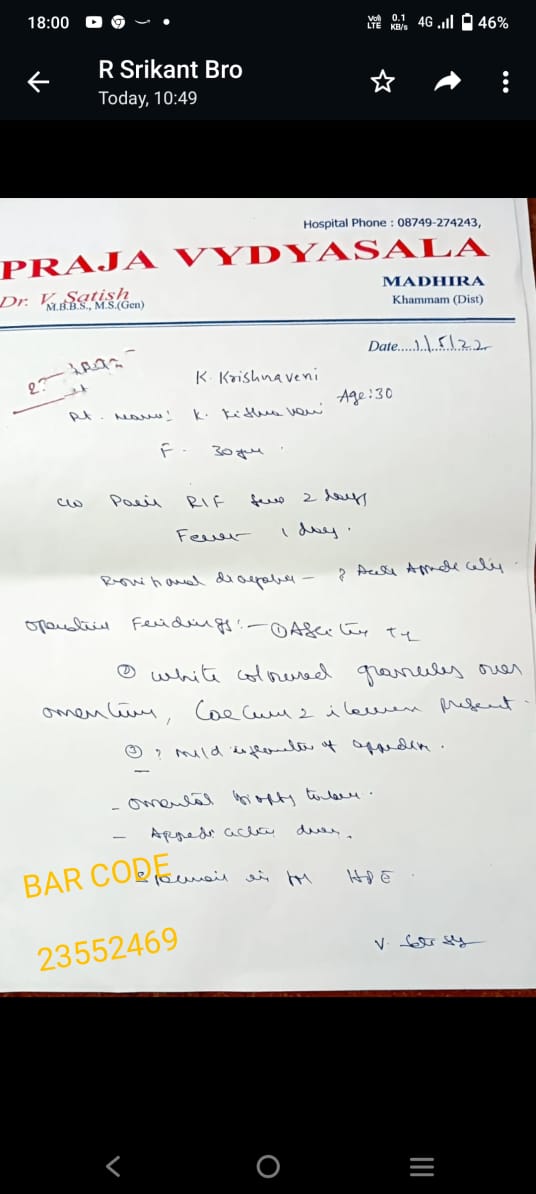 18:00
Vo) LTE 0.1 KB/s 4G 46%
R Srikant Bro
Today, 10:49
Hospital Phone : 08749-274243,
PRAJA VYDYASALA
Dr. V. Satish
M.B.B.S., M.S.(Gen)
MADHIRA
Khammam (Dist)
Date....1/5/22
K. Krishnaveni
Age:30
Pt. K.
F. 30
c/o Pain RIF 2 days
Fever 1 day.
Provisional diagnosis - ? Acute Appendicitis.
Operative Findings :- ① Ascites
② White coloured granules over
omentum, Caecum & ileum present.
③ ? mild of appendix.
- omental biopsy taken.
- done.
BAR CODE
in HPE
23552469
V.